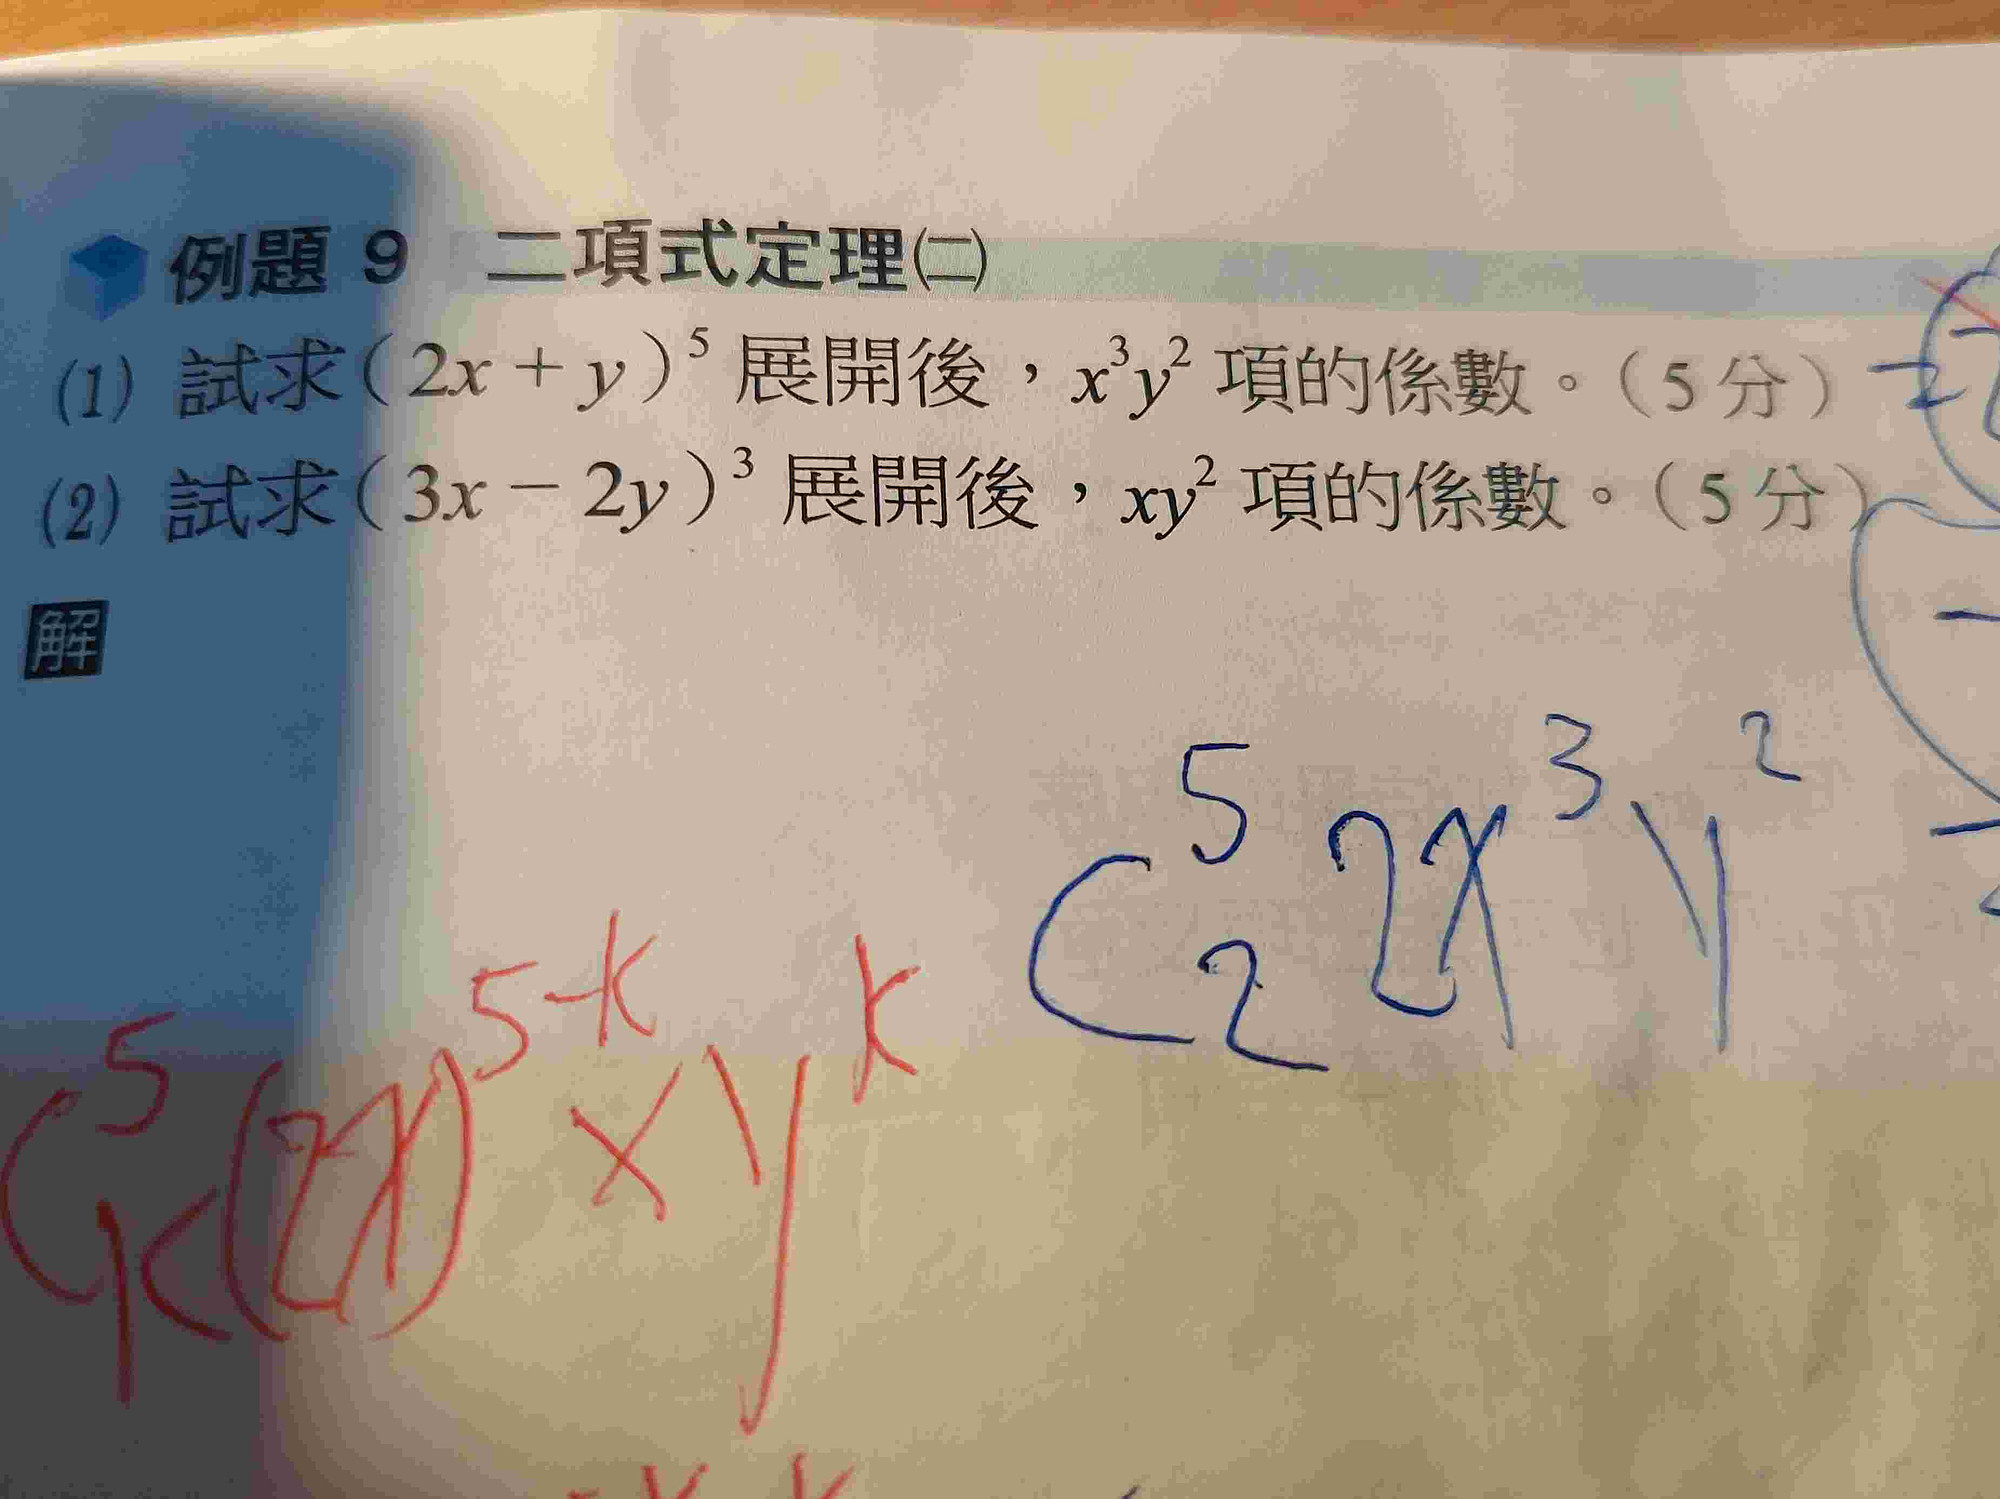 例題 9 二項式定理㈡
(1) 試求(2x+y)⁵ 展開後，x³y² 項的係數。(5 分)
(2) 試求(3x－2y)³ 展開後，xy² 項的係數。(5 分)
解
C⁵₂ 2x³ y²
C⁵ₖ (2x)⁵⁻ᵏ × yᵏ